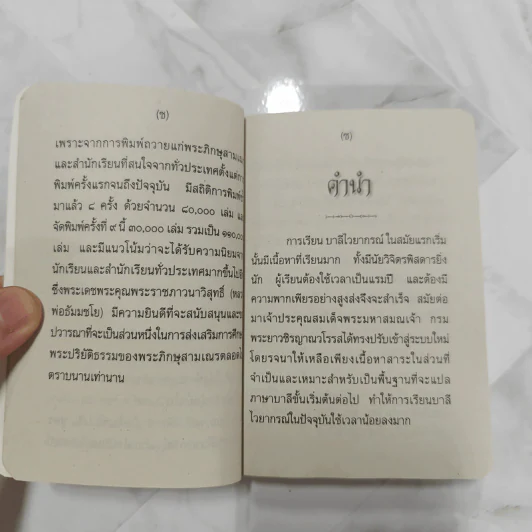 (ช)
เพราะจากการพิมพ์ถวายแก่พระภิกษุสามเณร
และสำนักเรียนที่สนใจจากทั่วประเทศตั้งแต่การ
พิมพ์ครั้งแรกจนถึงปัจจุบัน มีสถิติการพิมพ์
มาแล้ว ๘ ครั้ง ด้วยจำนวน ๘๐,๐๐๐ เล่ม และ
จัดพิมพ์ครั้งที่ ๙ นี้ ๓๐,๐๐๐ เล่ม รวมเป็น ๑๑๐,๐๐๐
เล่ม และมีแนวโน้มว่าจะได้รับความนิยมจาก
นักเรียนและสำนักเรียนทั่วประเทศมากขึ้นไปอีก
ซึ่งพระเดชพระคุณพระราชภาวนาวิสุทธิ์ (หลวง
พ่อธัมมชโย) มีความยินดีที่จะสนับสนุนและ
ปวารณาที่จะเป็นส่วนหนึ่งในการส่งเสริมการศึกษา
พระปริยัติธรรมของพระภิกษุสามเณรตลอดไป
ตราบนานเท่านาน
(ซ)
คำนำ
การเรียน บาลีไวยากรณ์ ในสมัยแรกเริ่ม
นั้นมีเนื้อหาที่เรียนมาก ทั้งมีนัยวิจิตรพิสดารยิ่ง
นัก ผู้เรียนต้องใช้เวลาเป็นแรมปี และต้องมี
ความพากเพียรอย่างสูงส่งจึงจะสำเร็จ สมัยต่อ
มาเจ้าประคุณสมเด็จพระมหาสมณเจ้า กรม
พระยาวชิรญาณวโรรสได้ทรงปรับเข้าสู่ระบบใหม่
โดยรจนาให้เหลือเพียงเนื้อหาสาระในส่วนที่
จำเป็นและเหมาะสำหรับเป็นพื้นฐานที่จะแปล
ภาษาบาลีขั้นเริ่มต้นต่อไป ทำให้การเรียนบาลี
ไวยากรณ์ในปัจจุบันใช้เวลาน้อยลงมาก